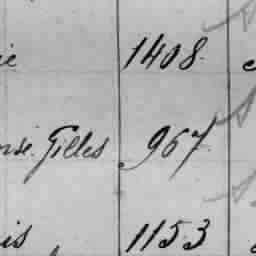 ie 1408
Gilles 967
is 1153